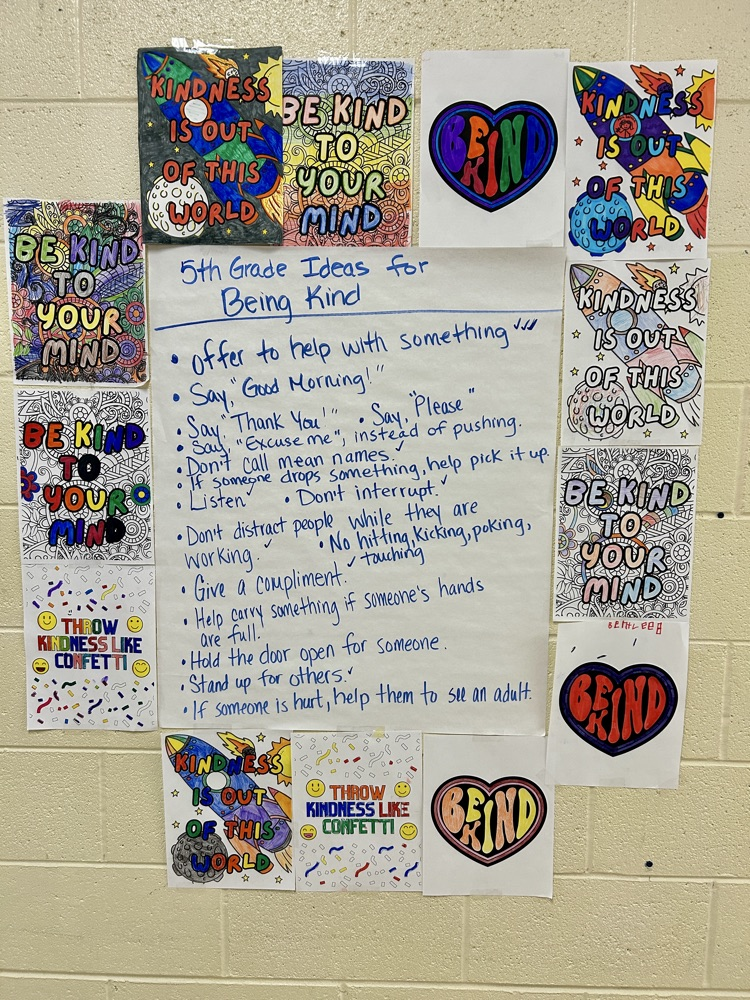 KINDNESS
IS OUT
OF THIS
WORLD
BE KIND
TO
YOUR
MIND
BE
KIND
KINDNESS
IS OUT
OF THIS
WORLD
BE KIND
TO
YOUR
MIND
5th Grade Ideas for
Being Kind
• Offer to help with something ✓✓✓
• Say, "Good Morning!"
• Say "Thank You!" • Say, "Please"
• Say, "Excuse me", instead of pushing.
• Don't call mean names. ✓
• If someone drops something, help pick it up.
• Listen ✓ • Don't interrupt. ✓
• Don't distract people while they are
working. ✓ • No hitting, kicking, poking,
✓ touching
• Give a compliment.
• Help carry something if someone's hands
are full.
• Hold the door open for someone.
• Stand up for others. ✓
• If someone is hurt, help them to see an adult.
KINDNESS
IS OUT
OF THIS
WORLD
BE KIND
TO
YOUR
MIND
BE KIND
TO
YOUR
MIND
THROW
KINDNESS LIKE
CONFETTI
BE
KIND
KINDNESS
IS OUT
OF THIS
WORLD
THROW
KINDNESS LIKE
CONFETTI
BE
KIND